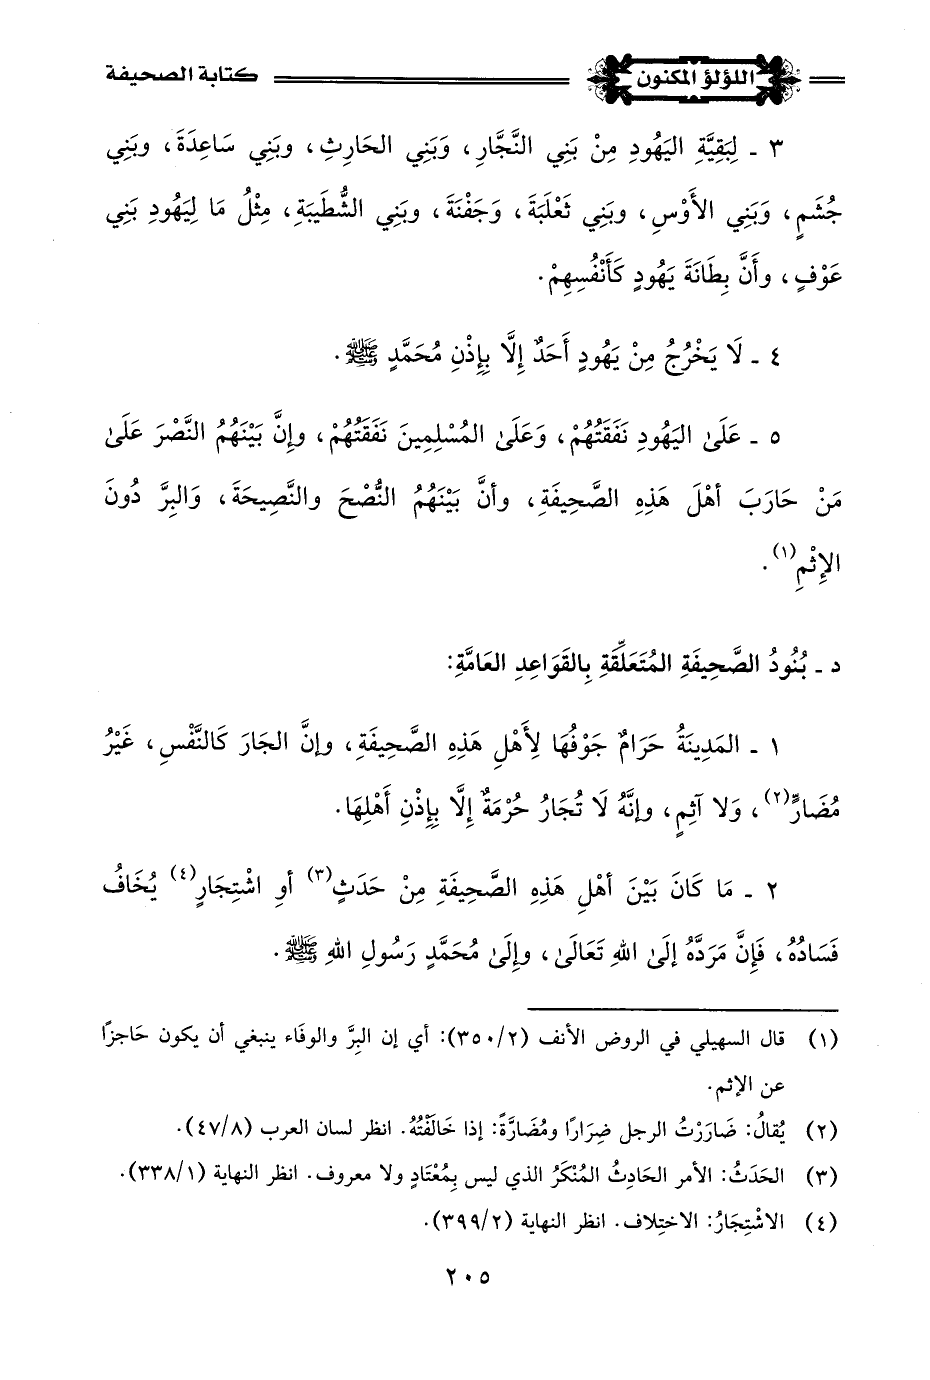 اللؤلؤ المكنون
كتابة الصحيفة
٣ ـ لِبَقِيَّةِ اليَهُودِ مِنْ بَنِي النَّجَّارِ، وَبَنِي الحَارِثِ، وبَنِي سَاعِدَةَ، وبَنِي
جُشَمٍ، وَبَنِي الأَوْسِ، وبَنِي ثَعْلَبَةَ، وَجَفْنَةَ، وبَنِي الشُّطَيبَةِ، مِثْلُ مَا لِيَهُودِ بَنِي
عَوْفٍ، وأَنَّ بِطَانَةَ يَهُودٍ كَأَنْفُسِهِمْ.
٤ ـ لَا يَخْرُجُ مِنْ يَهُودٍ أَحَدٌ إِلَّا بِإِذْنِ مُحَمَّدٍ ﷺ.
٥ ـ عَلَىٰ اليَهُودِ نَفَقَتُهُمْ، وَعَلَىٰ المُسْلِمِينَ نَفَقَتُهُمْ، وإِنَّ بَيْنَهُمُ النَّصْرَ عَلَىٰ
مَنْ حَارَبَ أهْلَ هَذِهِ الصَّحِيفَةِ، وأنَّ بَيْنَهُمُ النُّصْحَ والنَّصِيحَةَ، وَالبِرَّ دُونَ
الإِثْمِ(١).
د ـ بُنُودُ الصَّحِيفَةِ المُتَعَلِّقَةِ بِالقَوَاعِدِ العَامَّةِ:
١ ـ المَدِينَةُ حَرَامٌ جَوْفُهَا لِأَهْلِ هَذِهِ الصَّحِيفَةِ، وإنَّ الجَارَ كَالنَّفْسِ، غَيْرُ
مُضَارٍّ(٢)، وَلا آثِمٍ، وإنَّهُ لَا تُجَارُ حُرْمَةٌ إِلَّا بِإِذْنِ أَهْلِهَا.
٢ ـ مَا كَانَ بَيْنَ أهْلِ هَذِهِ الصَّحِيفَةِ مِنْ حَدَثٍ(٣) أوِ اشْتِجَارٍ(٤) يُخَافُ
فَسَادُهُ، فَإِنَّ مَرَدَّهُ إلَىٰ اللهِ تَعَالَىٰ، وإِلَىٰ مُحَمَّدٍ رَسُولِ اللهِ ﷺ.
(١) قال السهيلي في الروض الأنف (٣٥٠/٢): أي إن البِرَّ والوفَاء ينبغي أن يكون حَاجزًا
عن الإثم.
(٢) يُقالُ: ضَارَرْتُ الرجل ضِرَارًا ومُضَارَّةً: إذا خَالَفْتُهُ. انظر لسان العرب (٤٧/٨).
(٣) الحَدَثُ: الأمر الحَادِثُ المُنْكَرُ الذي ليس بِمُعْتَادٍ ولا معروف. انظر النهاية (٣٣٨/١).
(٤) الاشْتِجَارُ: الاختِلاف. انظر النهاية (٣٩٩/٢).
٢٠٥